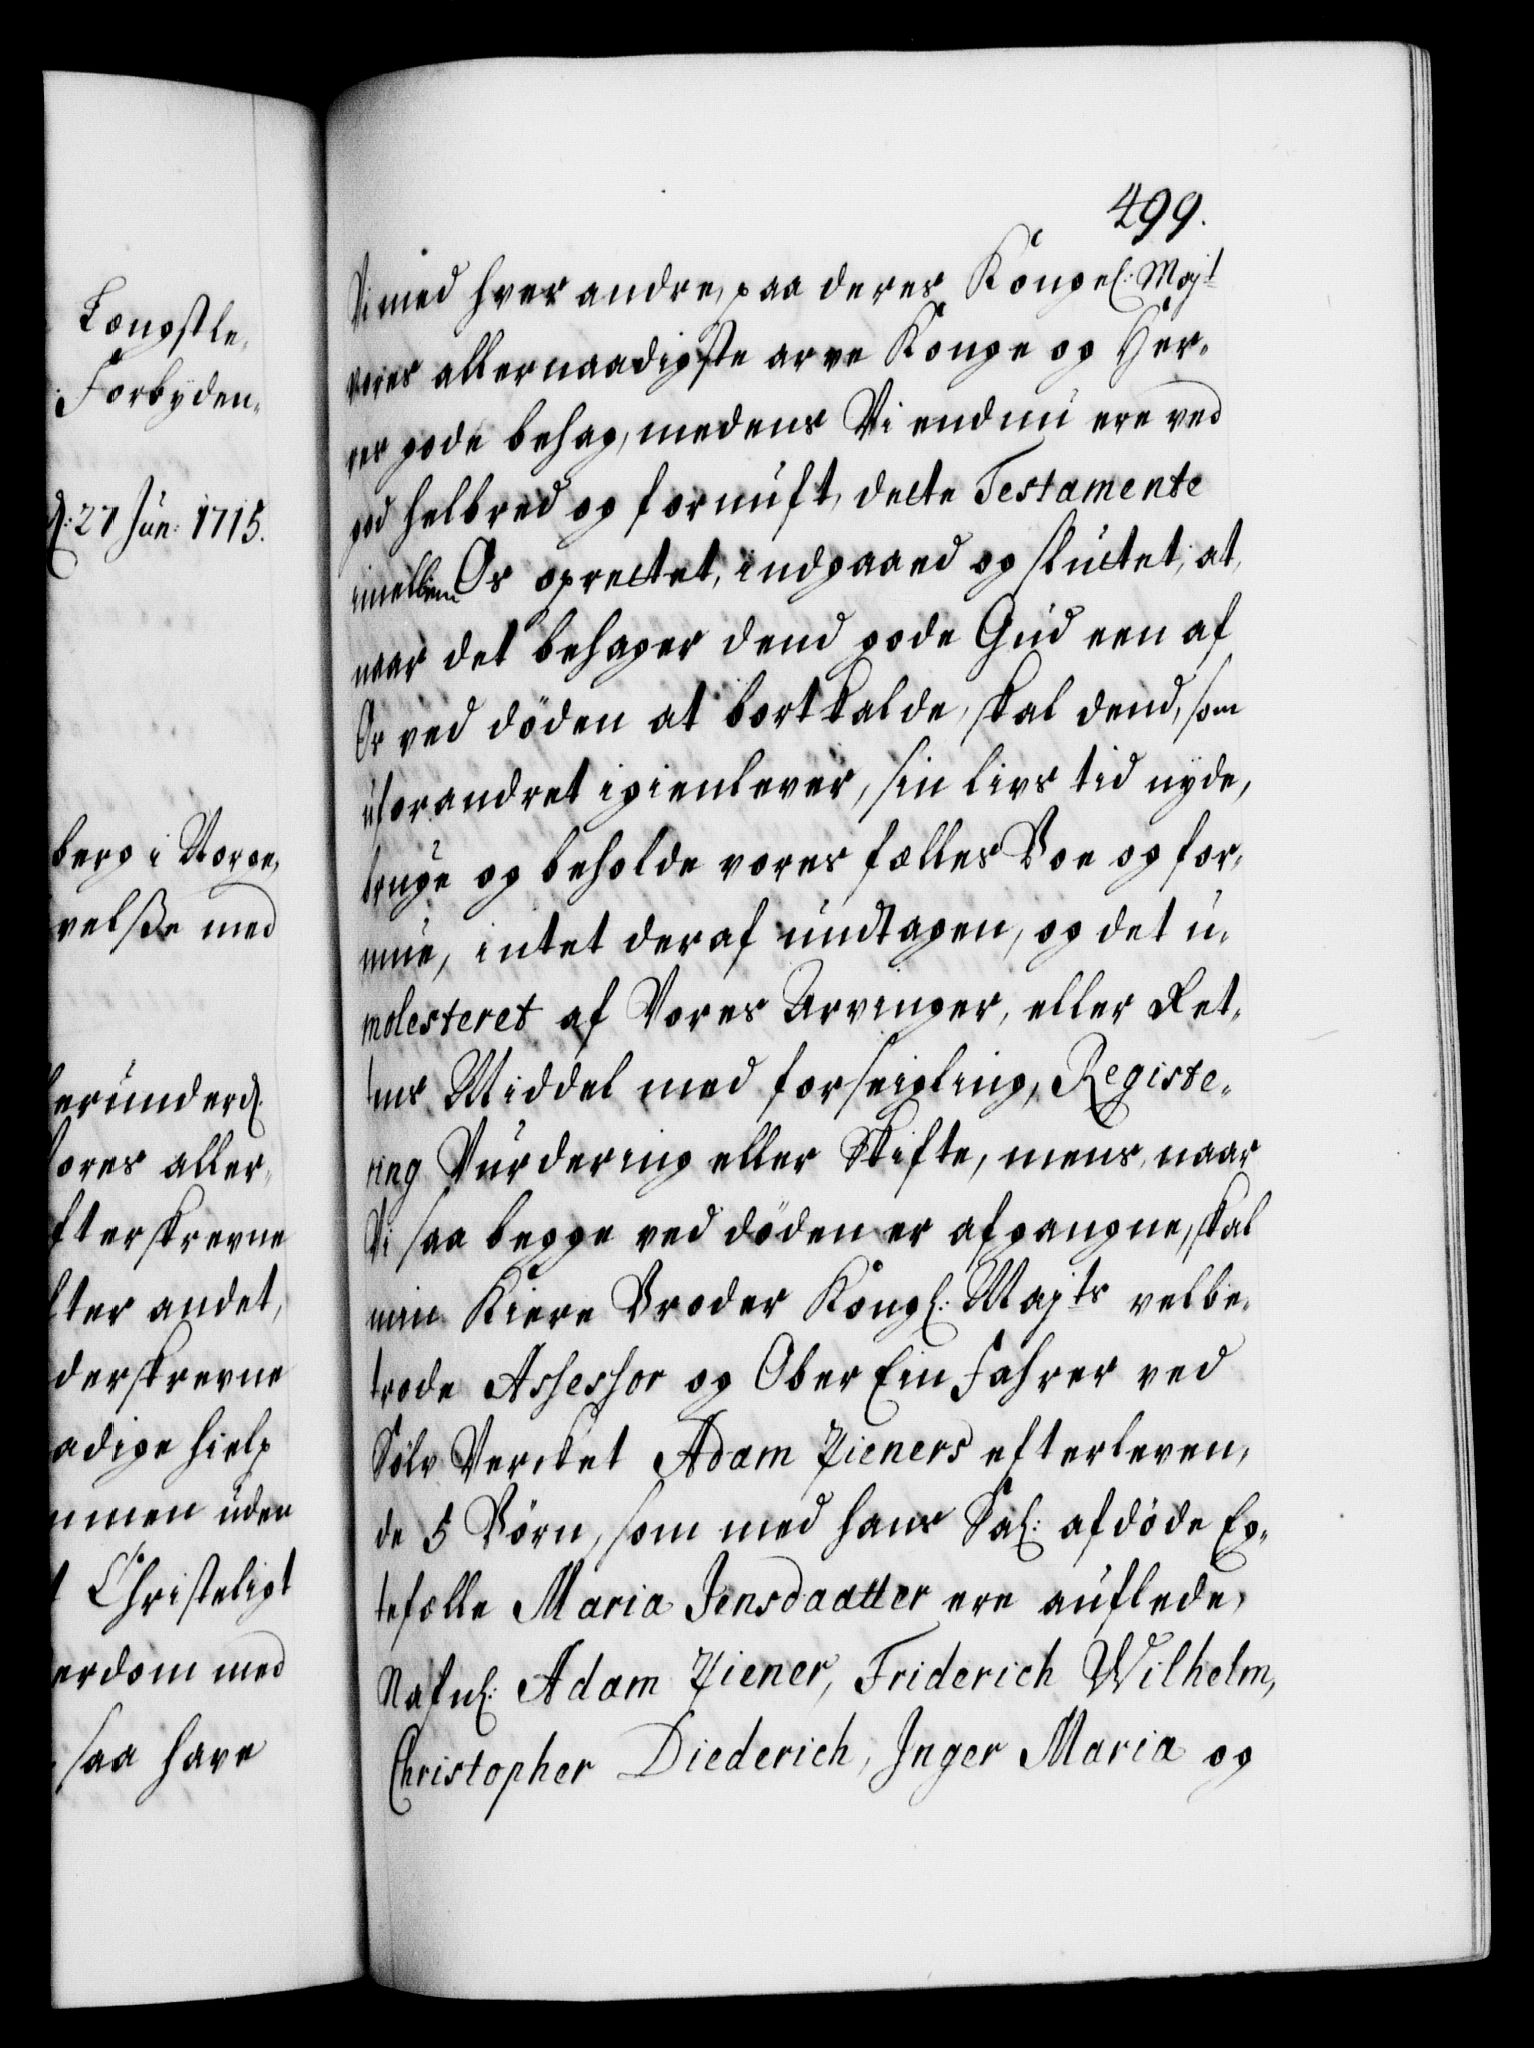 Længstle,
Forbyden,
d: 27 Jun: 1715.
berg i Norge,
velsse med
herunderd.
Vores aller,
fterskrevne
lter andet,
derskrevne
adige hielp
mmen uden
t Christeligt
erdom med
saa have
499.
Vi med hver andre, paa deres Kongel: Majt
vores allernaadigste arve Konge og Her,
rer gode behag, medens Vi endnu ere ved
god helbred og fornuft, dette Testamente
imellem Os oprettet, indgaaed og sluttet, at,
naar det behager dend gode Gud een af
Os ved döden at bortkalde, skal dend, som
uforandret igienlever, sin livs tid nyde,
bruge og beholde vores fælles Boe og for,
mue, intet deraf undtagen, og det u,
molesteret af Vores Arvinger, eller Ret,
tens Middel med forseigling, Registe,
ring Vurdering eller Skifte, mens, naar
Vi saa begge ved döden er afgangne, skal
min Kiere Broder Kongl: Majts velbe,
trode Assessor og Ober Ein Fahrer ved
Sölv Vercket Adam Zieners efterleven,
de 5 Börn, som med hans Sal: afdöde Eg,
tefælle Maria Jensdaatter ere auflede,
Nafnl: Adam Ziener, Friderich Wilhelm,
Christopher Diederich, Inger Maria og